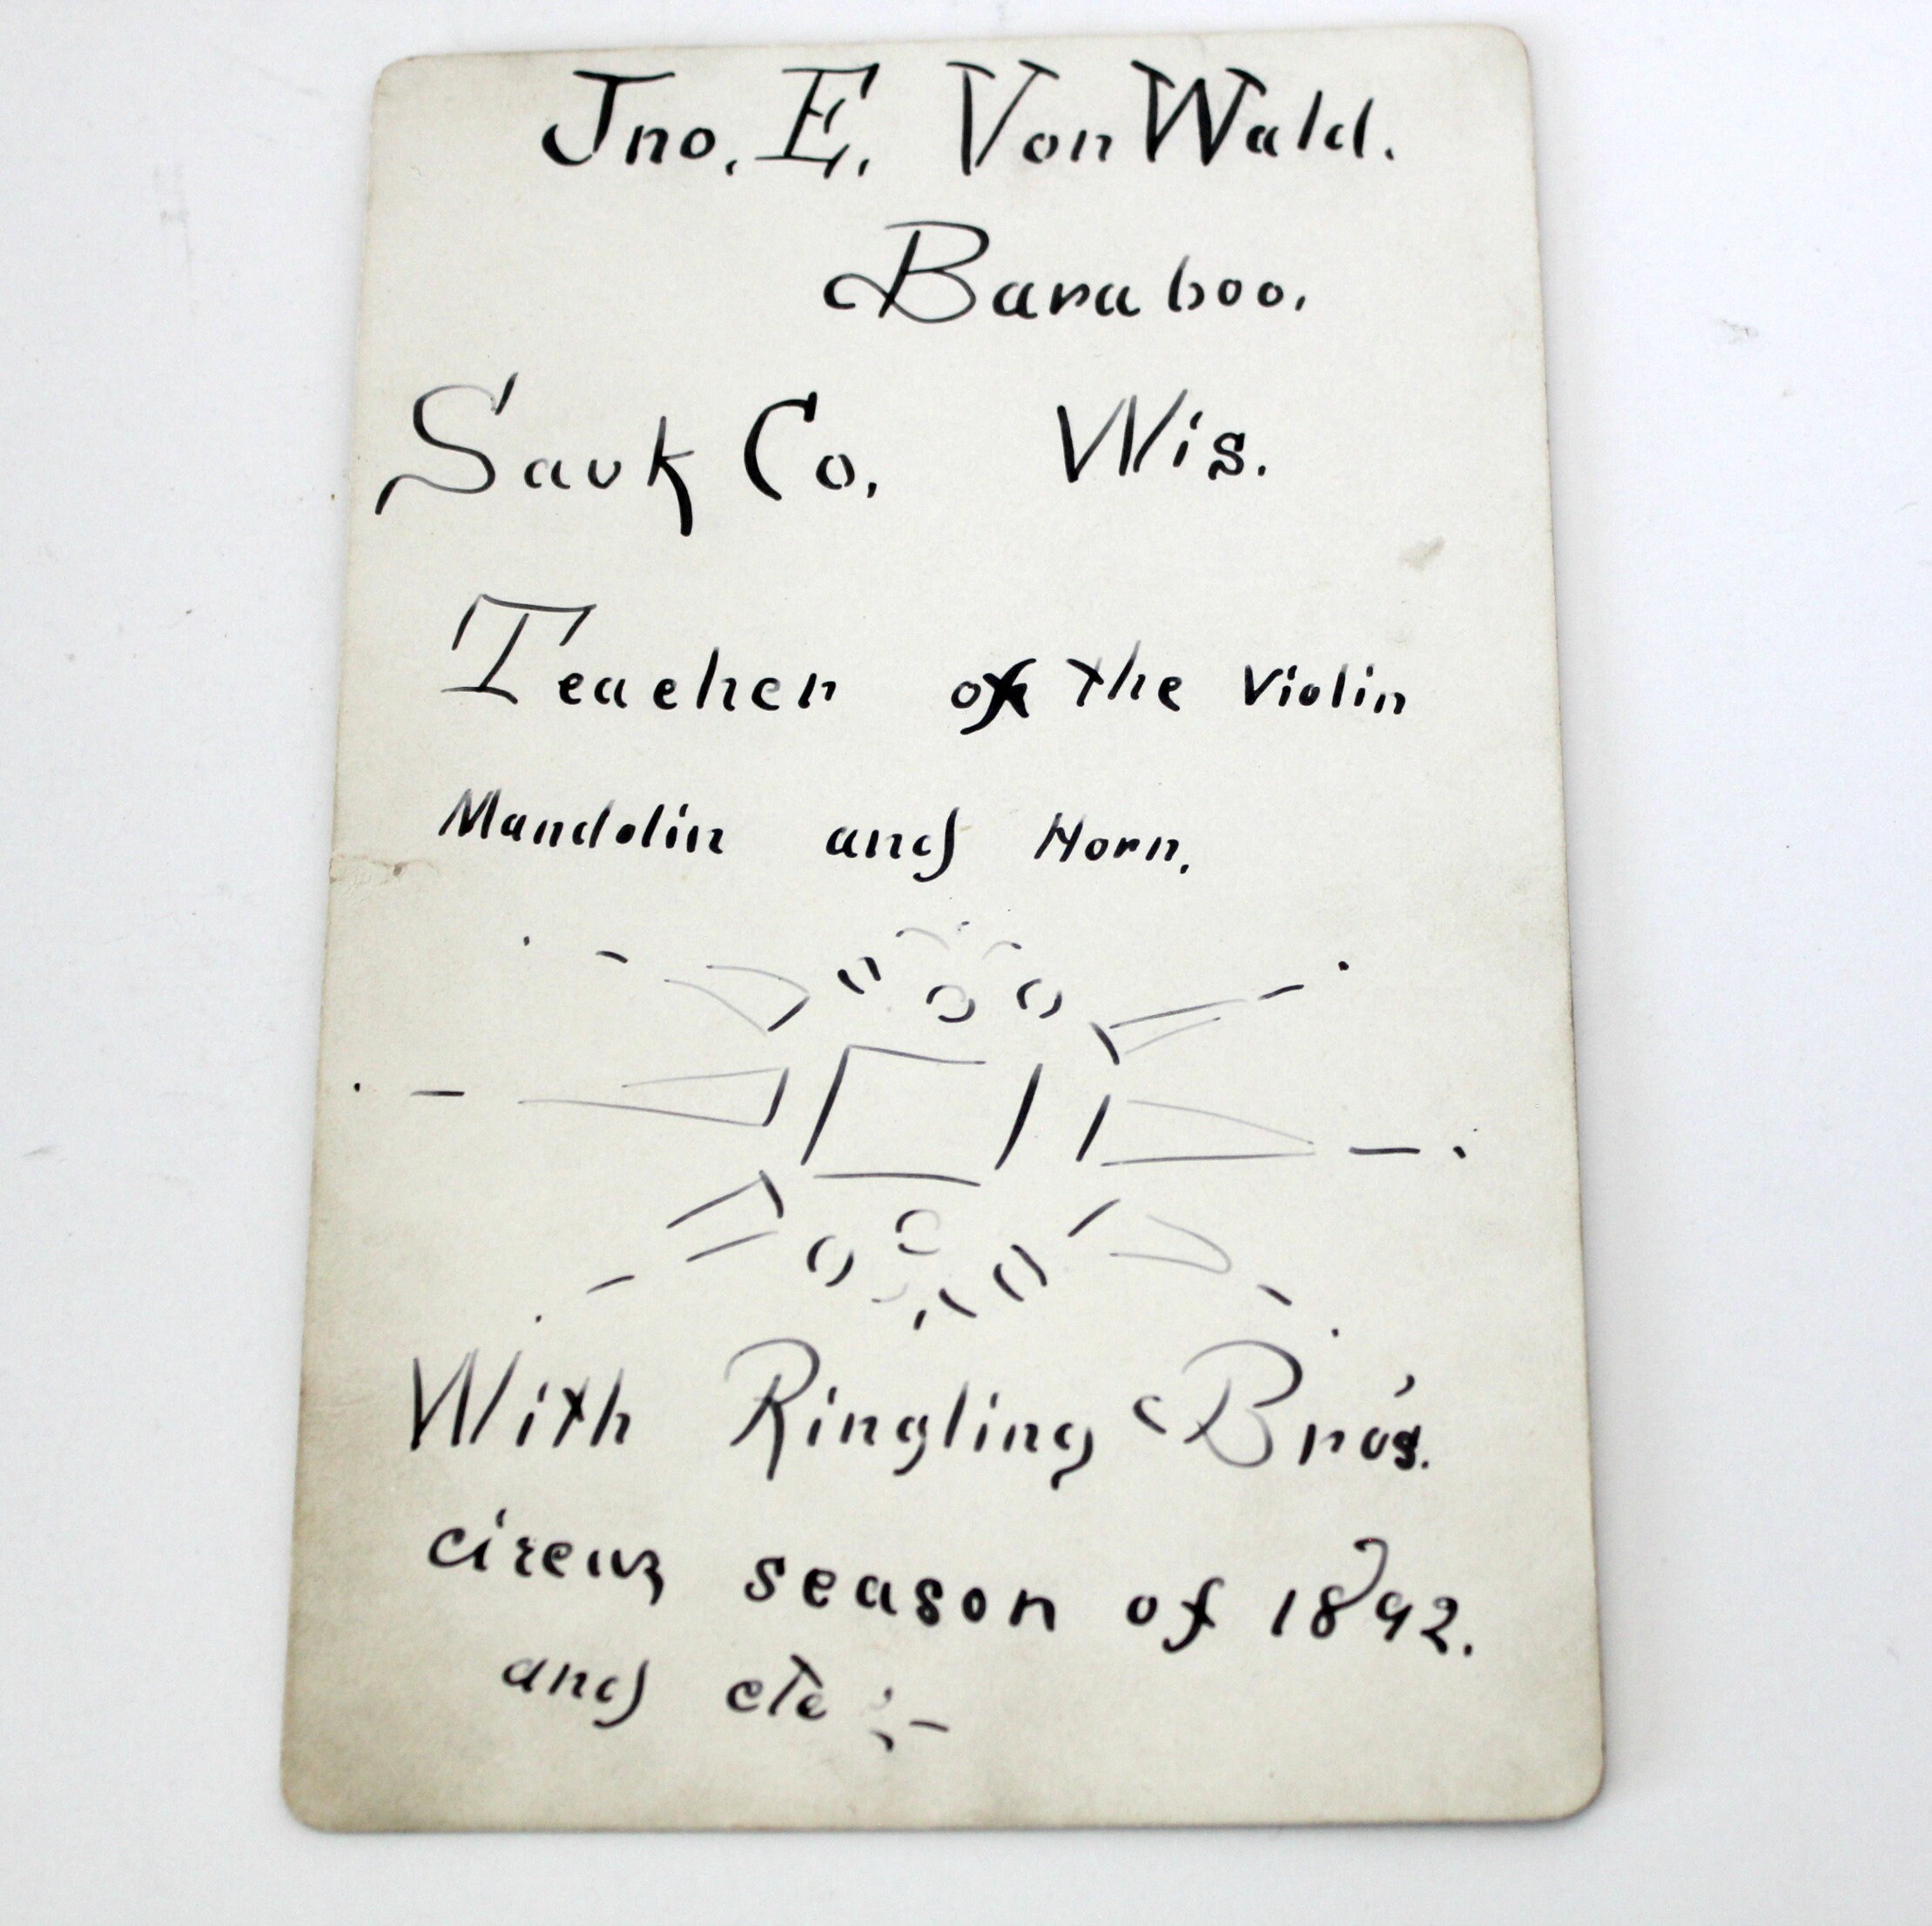 Jno. E. Von Wald.
Baraboo.
Sauk Co. Wis.
Teacher of the Violin
Mandolin and Horn.
With Ringling Bro's.
circus season of 1892.
and etc :-